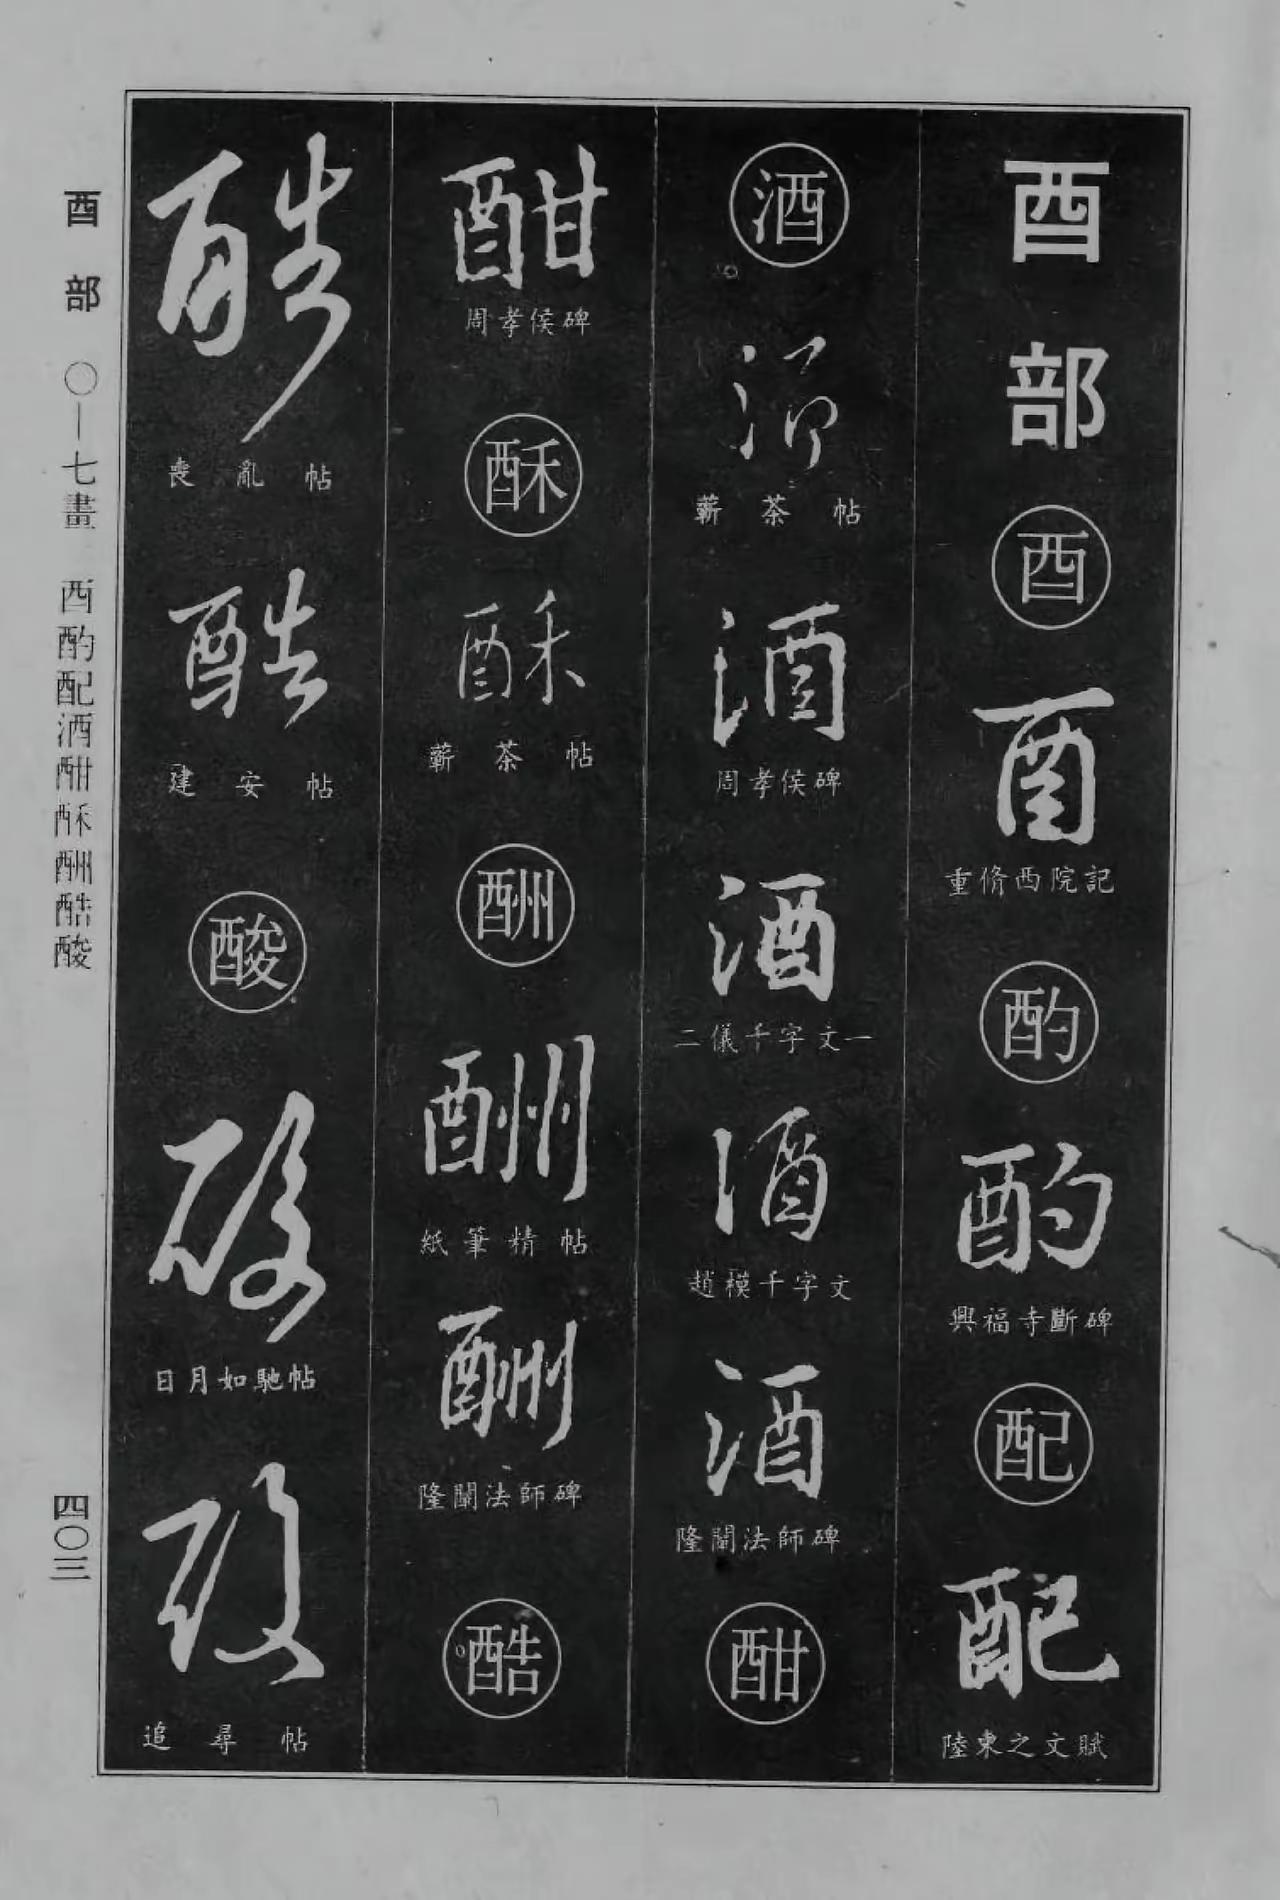 酉部
酉
酉
重脩西院記
酌
酌
興福寺斷碑
配
配
陸柬之文賦
酒
酒
蘄茶帖
酒
周孝侯碑
酒
二儀千字文一
酒
趙模千字文
酒
隆闡法師碑
酣
酣
周孝侯碑
酥
酥
蘄茶帖
酬
酬
紙筆精帖
酬
隆闡法師碑
酷
酷
喪亂帖
酷
建安帖
酸
酸
日月如馳帖
酸
追尋帖
酉部 〇—七畫 酉酌配酒酣酥酬酷酸
四〇三